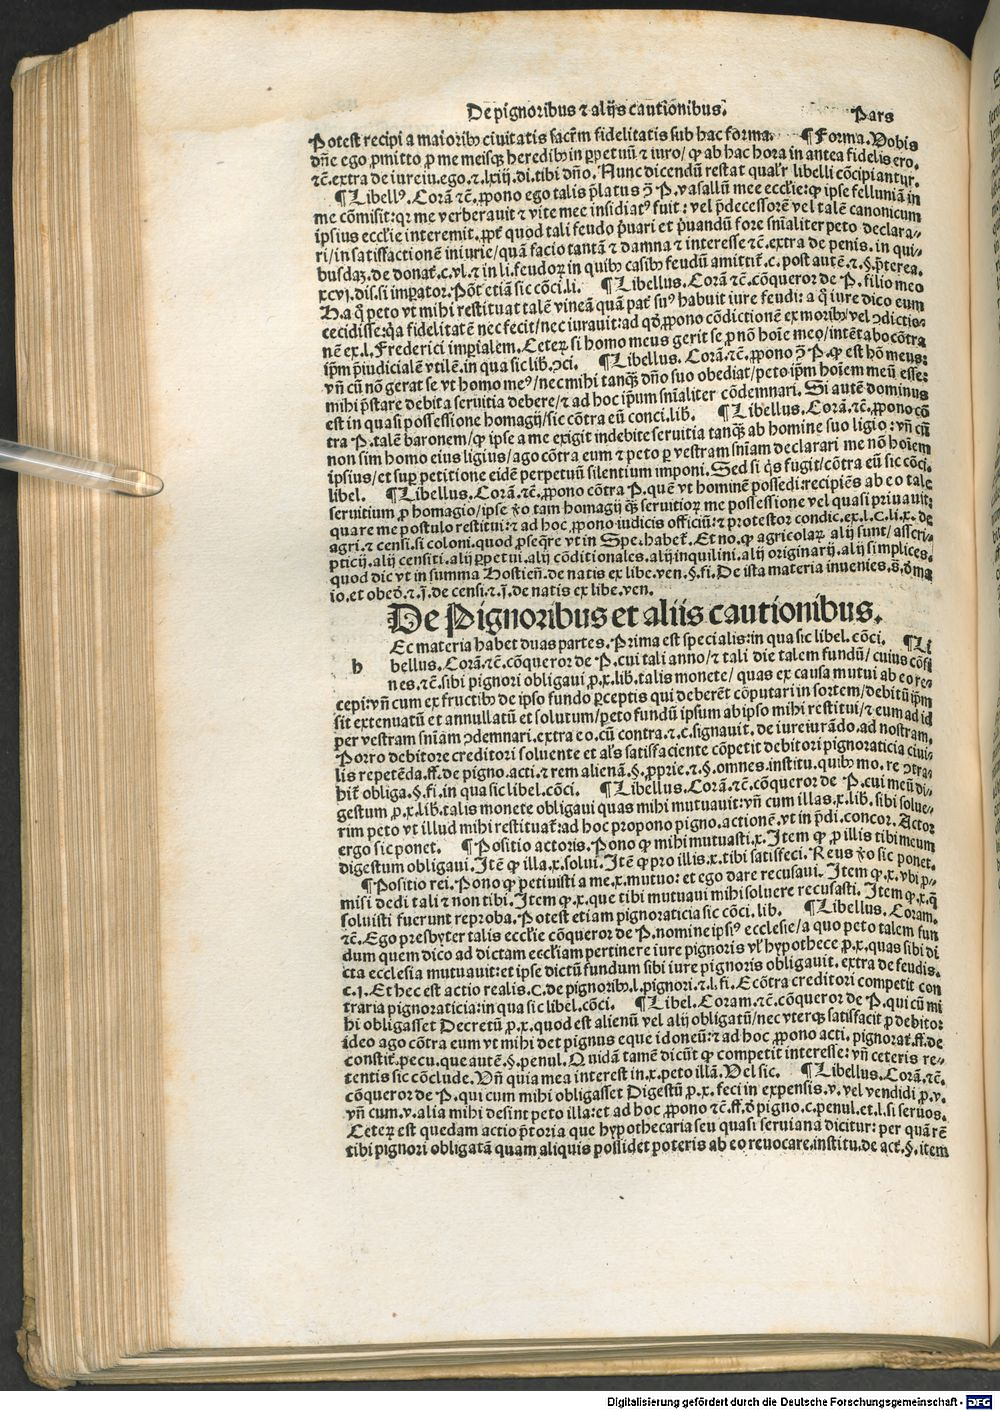 De pignoribus ⁊ alijs cautionibus.
Pars
Potest recipi a maioribꝰ ciuitatis sacrm̄ fidelitatis sub hac forma. ¶ Forma. Vobis
dn̄e ego ꝓmitto ꝓ me meisqꝫ heredibꝰ in ꝑpetuū ⁊ iuro/ ꝙ ab hac hora in antea fidelis ero.
⁊c̄. extra de iureiu. ego. ⁊ .lxiij. di. tibi dn̄o. Nunc dicendū restat qualr̄ libelli cōcipiantur.
¶ Libellꝰ. Corā ⁊c̄. ꝓpono ego talis p̄latus ↄ̄ P. vasallū mee eccl̄ie: ꝙ ipse felluniā in
me cōmisit: qꝛ me verberauit ⁊ vite mee insidiatꝰ fuit: vel p̄decessorē vel talē canonicum
ipsius eccl̄ie interemit. ꝓpt̄ quod tali feudo p̄uari et p̄uandū fore sn̄ialiter peto declara⸗
ri/ in satisfactionē iniurie/ quā facio tantā ⁊ damna ⁊ interesse ⁊c̄. extra de penis. in qui⸗
busdaꝫ. de donat̄. c. vl. ⁊ in li. feudoꝝ in quibꝰ casibꝰ feudū amittit̄. c. post autē. ⁊ .§. p̄terea.
xcvj. dis. si imꝑator. Pōt etiā sic cōci. li. ¶ Libellus. Corā ⁊c̄. cōqueror de P. filio meo
H. a q̊ peto vt mihi restituat talē vineā quā pat̄ suꝰ habuit iure feudi: a q̊ iure dico eum
cecidisse: qꝛa fidelitatē nec fecit/ nec iurauit: ad qđ ꝓpono cōdictionē ex moribꝰ vel ↄdictio⸗
nē ex .l. Frederici imꝑialem. Ceteꝝ si homo meus gerit se ꝓ nō hoīe meo/ intētabo cōtra
ip̄m p̄iudicialē vtilē. in qua sic lib̄. ↄci. ¶ Libellus. Corā. ⁊c̄. ꝓpono ↄ̄ P. ꝙ est hō meus:
vn̄ cū nō gerat se vt homo meꝰ/ nec mihi tanqꝫ dn̄o suo obediat/ peto ip̄m hoīem meū esse:
mihi p̄stare debita seruitia debere/ ⁊ ad hoc ip̄um sn̄ialiter cōdemnari. Si autē dominus
est in quasi possessione homagij/ sic cōtra eū conci. lib. ¶ Libellus. Corā. ⁊c̄. ꝓpono cō
tra P. talē baronem/ ꝙ ipse a me exigit indebite seruitia tanqꝫ ab homine suo ligio: vn̄ cū
non sim homo eius ligius/ ago cōtra eum ⁊ peto ꝑ vestram sn̄iam declarari me nō hoīem
ipsius/ et suꝑ petitione eidē perpetuū silentium imponi. Sed si q̇s fugit/ cōtra eū sic cōci.
libel. ¶ Libellus. Corā. ⁊c̄. ꝓpono cōtra P. quē vt hominē possedi: recipiēs ab eo tale
seruitium ꝓ homagio/ ipse ꝟo tam homagij qꝫ seruitioꝝ me possessione vel quasi priuauit:
quare me postulo restitui: ⁊ ad hoc ꝓpono iudicis officiū: ⁊ protestor condic. ex .l. C. li. x. de
agri. ⁊ censi. si coloni. quod ꝓseq̄re vt in Spe. habet̄. Et no. ꝙ agricolaꝝ alij sunt/ ascri⸗
pticij. alij censiti. alij ꝑpetui. alij cōditionales. alij inquilini. alij originarij. alij simplices.
quod dic vt in summa Hostien̄. de natis ex libe. ven. §. fi. De ista materia inuenies. s. đ ma
io. et obeđ. ⁊ .j. de censi. ⁊ .j. de natis ex libe. ven.
De Pignoribus et aliis cautionibus.
h
Ec materia habet duas partes. Prima est specialis: in qua sic libel. cōci. ¶ Li
bellus. Corā. ⁊c̄. cōqueror de P. cui tali anno/ ⁊ tali die talem fundū/ cuius cōfi
nes. ⁊c̄. sibi pignori obligaui ꝓ .x. lib. talis monete/ quas ex causa mutui ab eo re⸗
cepi: vn̄ cum ex fructibꝰ de ipso fundo ꝑceptis qui deberēt cōputari in sortem/ debitū ip̄m
sit extenuatū et annullatū et solutum/ peto fundū ipsum ab ipso mihi restitui/ ⁊ eum ad id
per vestram sn̄iam ↄdemnari. extra eo. cū contra. ⁊ .c. signauit. de iureiurādo. ad nostram.
Porro debitore creditori soluente et al̄s satisfaciente cōpetit debitori pignoraticia ciui⸗
lis repetēda. ff. de pigno. acti. ⁊ rem alienā. §. ꝓprie. ⁊ .§. omnes. institu. quibꝰ mo. re ↄtra⸗
hit̄ obliga. §. fi. in qua sic libel. cōci. ¶ Libellus. Corā. ⁊c̄. cōqueror de P. cui meū di⸗
gestum ꝓ .x. lib̄. talis monete obligaui quas mihi mutuauit: vn̄ cum illas .x. lib. sibi solue⸗
rim peto vt illud mihi restituat̄: ad hoc propono pigno. actionē. vt in p̄di. concor. Actor
ergo sic ponet. ¶ Positio actoris. Pono ꝙ mihi mutuasti .x. Item ꝙ ꝓ illis tibi meum
digestum obligaui. Itē ꝙ illa .x. solui. Itē ꝙ pro illis .x. tibi satisfeci. Reus ꝟo sic ponet.
¶ Positio rei. Pono ꝙ petiuisti a me .x. mutuo: et ego dare recusaui. Item ꝙ .x. vbi ꝓ⸗
misi dedi tali ⁊ non tibi. Item ꝙ .x. que tibi mutuaui mihi soluere recusasti. Item ꝙ .x. q̄
soluisti fuerunt reproba. Potest etiam pignoraticia sic cōci. lib. ¶ Libellus. Coram.
⁊c̄. Ego presbyter talis eccl̄ie cōqueror de P. nomine ipsiꝰ ecclesie/ a quo peto talem fun
dum quem dico ad dictam eccl̄iam pertinere iure pignoris vl̄ hypothece ꝓ .x. quas sibi di
cta ecclesia mutuauit: et ipse dictū fundum sibi iure pignoris obligauit. extra de feudis.
c. j. Et hec est actio realis. C. de pignoribꝰ. l. pignori. ⁊ .l. fi. E cōtra creditori competit con
traria pignoraticia: in qua sic libel. cōci. ¶ Libel. Coram. ⁊c̄. cōqueror de P. qui cū mi
hi obligasset Decretū ꝓ .x. quod est alienū vel alij obligatū/ nec vterqꝫ satisfacit ꝓ debito:
ideo ago cōtra eum vt mihi det pignus eque idoneū: ⁊ ad hoc ꝓpono acti. pignorat̄. ff. de
constit̄. pecu. que autē. §. penul. Quidā tamē dicūt ꝙ competit interesse: vn̄ ceteris re⸗
tentis sic cōclude. Vn̄ quia mea interest in .x. peto illā. Vel sic. ¶ Libellus. Corā. ⁊c̄.
cōqueror de P. qui cum mihi obligasset Digestū ꝓ .x. feci in expensis .v. vel vendidi ꝓ .v.
vn̄ cum .v. alia mihi desint peto illa: et ad hoc ꝓpono ⁊c̄. ff. đ pigno. c. penul. et .l. si seruos.
Ceteꝝ est quedam actio p̄toria que hypothecaria seu quasi seruiana dicitur: per quā rē
tibi pignori obligatā quam aliquis possidet poteris ab eo reuocare. institu. de act̄. §. item
Digitalisierung gefördert durch die Deutsche Forschungsgemeinschaft - DFG